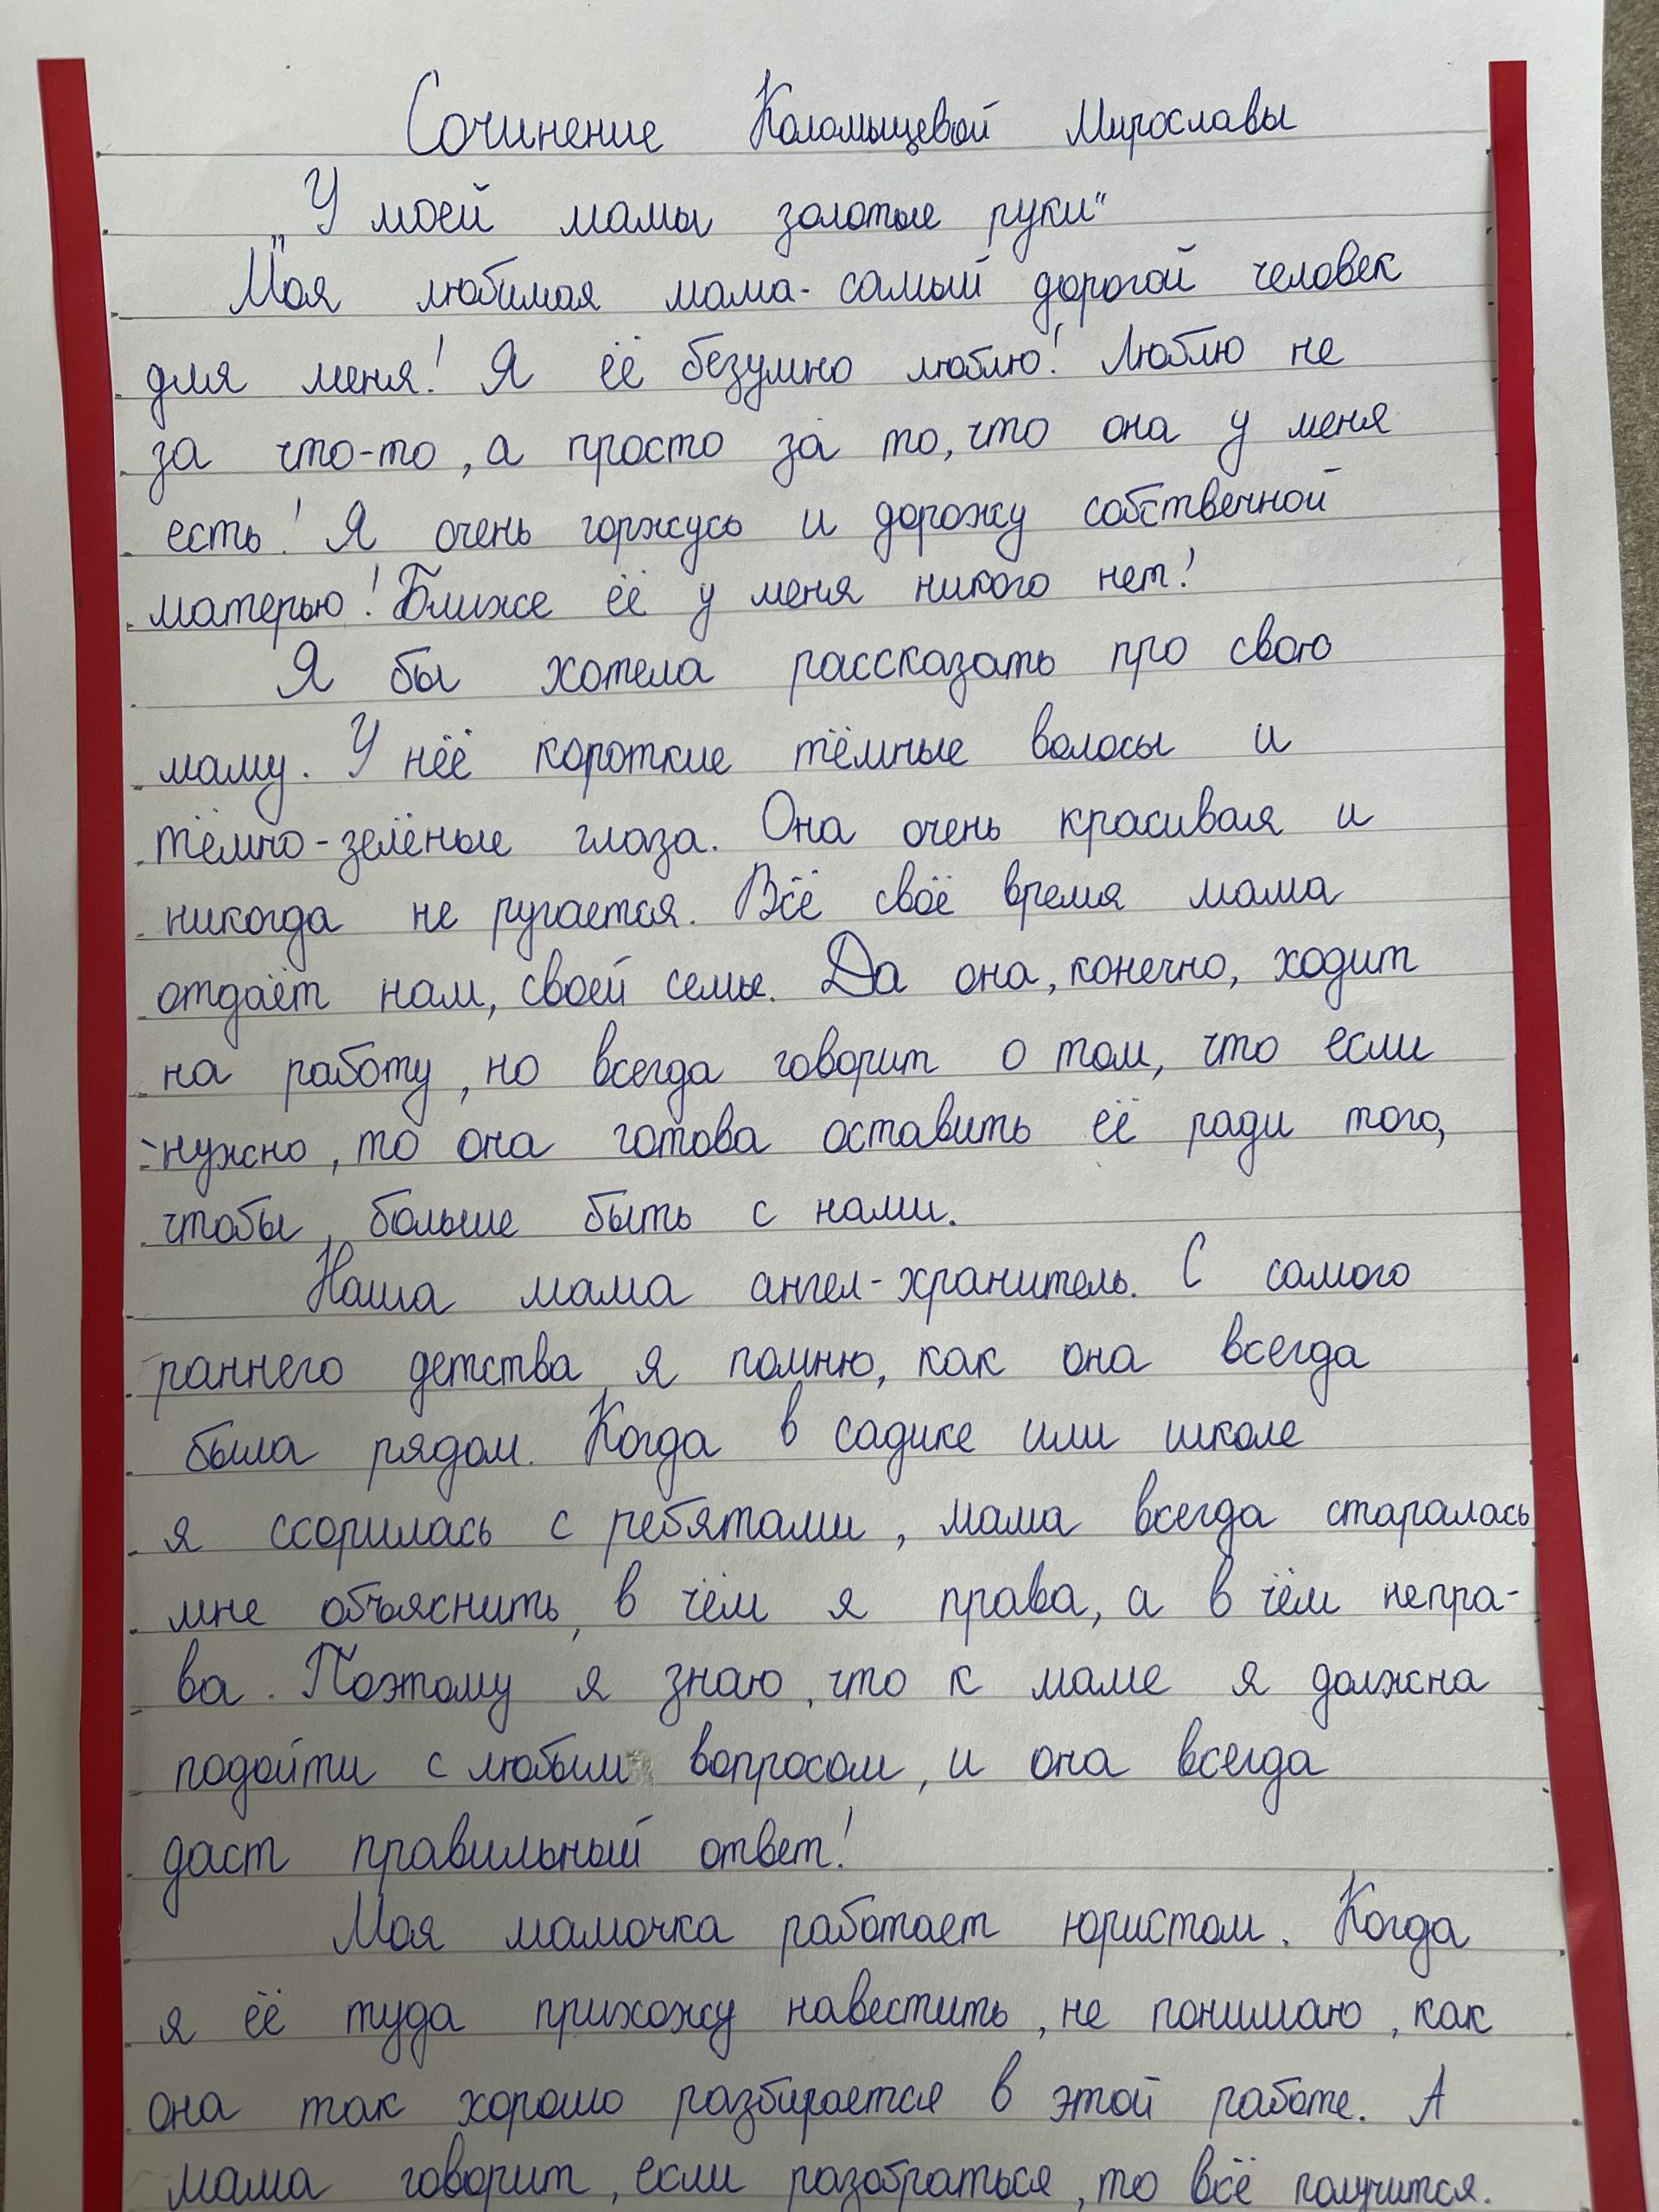 Сочинение Коломыцевой Мирославы
„У моей мамы золотые руки"
Моя любимая мама- самый дорогой человек
для меня! Я её безумно люблю! Люблю не
за что-то, а просто за то, что она у меня
есть! Я очень горжусь и дорожу собственной
матерью! Ближе её у меня никого нет!
Я бы хотела рассказать про свою
маму. У нёё короткие тёмные волосы и
тёмно-зелёные глаза. Она очень красивая и
никогда не ругается. Всё своё время мама
отдаёт нам, своей семье. Да она, конечно, ходит
на работу, но всегда говорит о том, что если
нужно, то она готова оставить её ради того,
чтобы больше быть с нами.
Наша мама ангел-хранитель. С самого
раннего детства я помню, как она всегда
была рядом. Когда в садике или школе
я ссорилась с ребятами, мама всегда старалась
мне объяснить, в чём я права, а в чём непра-
ва. Поэтому я знаю, что к маме я должна
подойти с любым вопросом, и она всегда
даст правильный ответ!
Моя мамочка работает юристом. Когда
я её туда прихожу навестить, не понимаю, как
она так хорошо разбирается в этой работе. А
мама говорит, если разобраться, то всё получится.